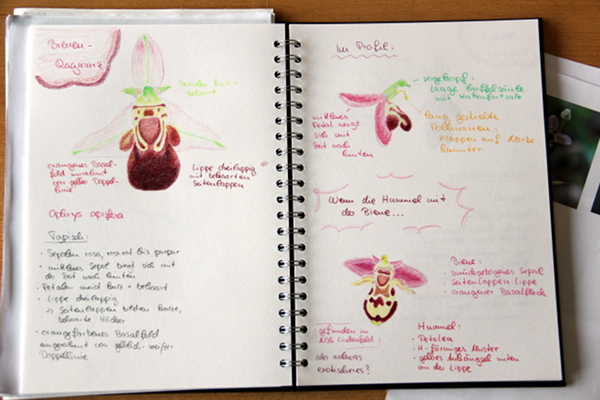 Bienen-
Ragwurz
Petalen kurz +
behaart
orangenes Basal-
feld umrahmt
von gelber Doppel-
linie
Lippe dreilappig
mit behaarten
Seitenlappen
Ophrys apifera
Typisch:
• Sepalen rosa, rosarot bis purpur
• mittleres Sepal biegt sich mit
der Zeit nach hinten
• Petalen meist kurz + behaart
• Lippe dreilappig
→ Seitenlappen bilden kurze,
behaarte Höcker
• orangefarbenes Basalfeld
umrahmt von gelblich-weißer
Doppellinie
Im Profil:
Vogelkopf:
lange Griffelsäule
mit Hakenfortsatz
mittleres
Petal neigt
sich mit
Zeit nach
hinten
lang gestielte
Pollinarien:
Klappen auf Narbe
herunter
Wenn die Hummel mit
der Biene...
Biene:
• zurückgebogenes Sepal
• Seitenlappen Lippe
• orangener Basalfleck
gefunden im
NSG Lindenfeld:
oder anderes
exotischeres?
Hummel:
• Petalen
• H-förmiges Muster
• gelbes Anhängsel unten
an der Lippe